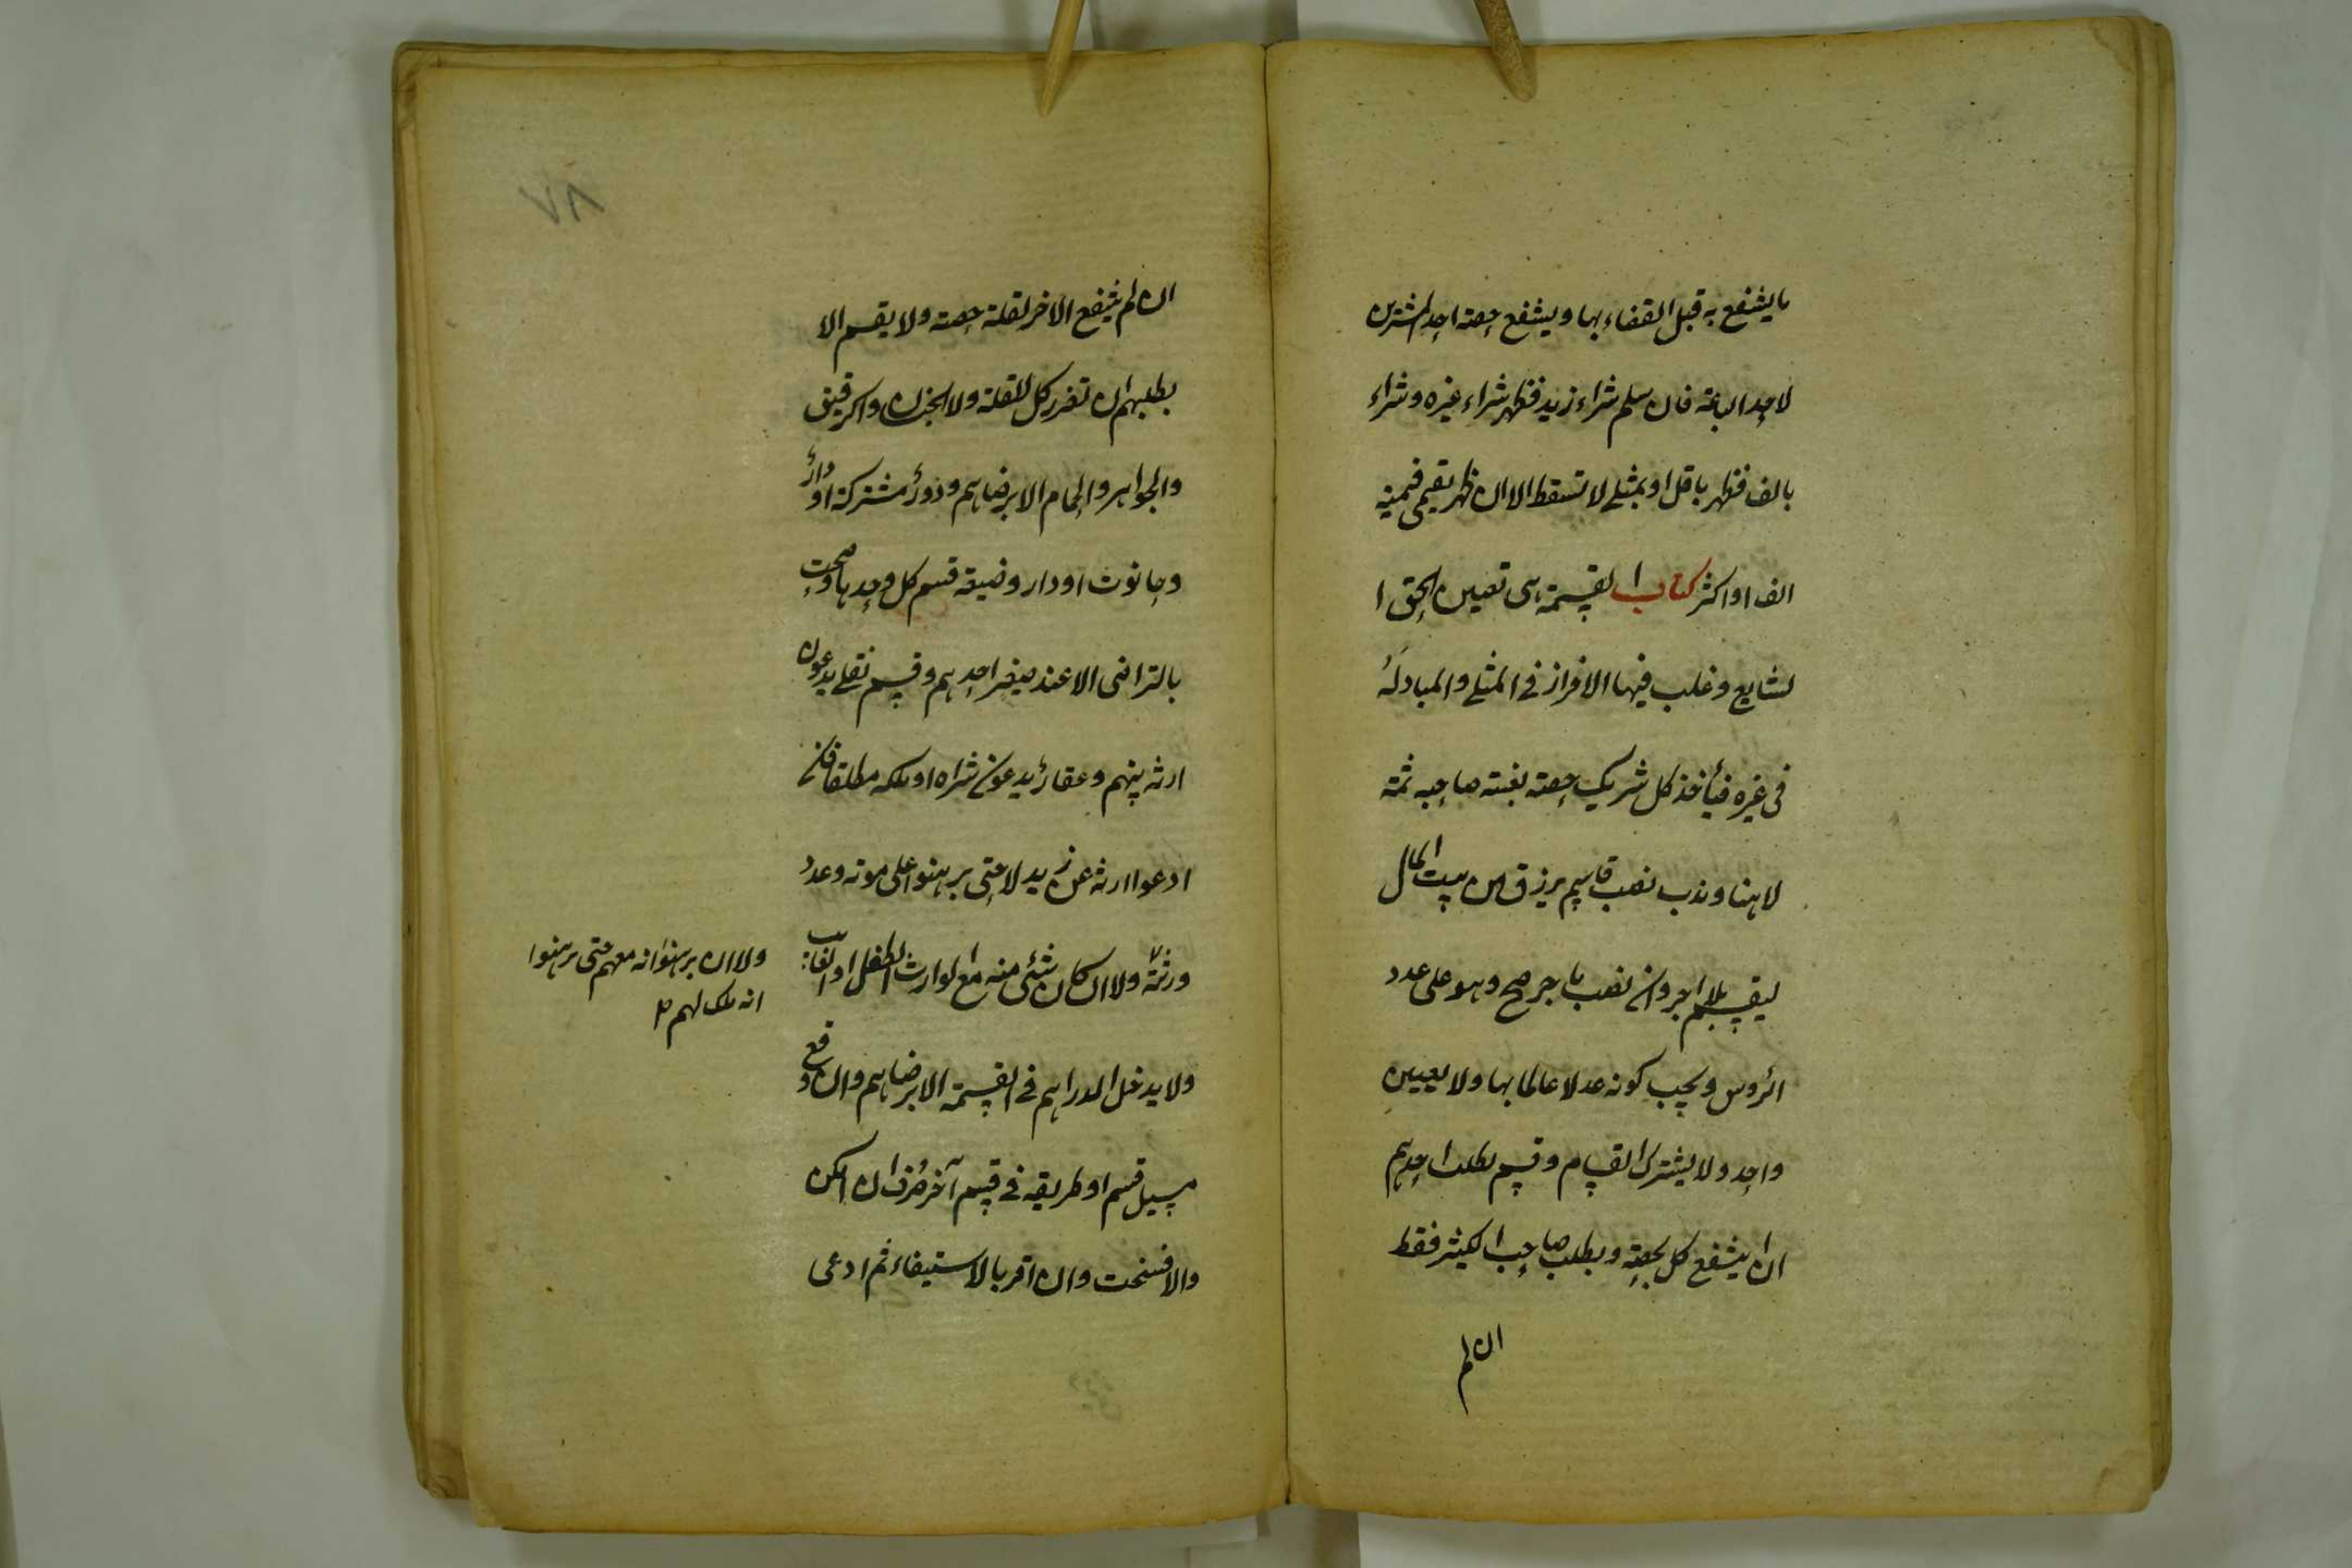 ما يشفع به قبل القضاء بها ويشفع حصة احد المشترين
لا احد الباعة فان سلم شراء زيد فظهر شراء غيره وشراء
بالف فظهر باقل او بمثلي لا تسقط الا ان ظهر بقيمي قيمته
الف او اكثر كتاب القسمة هي تعيين الحق ا
لشايع وغلب فيها الافراز في المثلي والمبادلة
في غيره فيأخذ كل شريك حصته بغيبة صاحبه ثمة
لا هنا وندب نصب قاسم يرزق من بيت المال
ليقسم بلا اجر وان نصب باجر صح وهو على عدد
الرؤس ويجب كونه عدلا عالما بها ولا يعين
واحد ولا يشترك القسام وقسم بطلب احدهم
ان انتفع كل بحصته وبطلب صاحب الكثير فقط
ان لم
٧٨
ان لم ينتفع الاخر لقلة حصته ولا يقسم الا
بطلبهم ان تضرر كل للقلة ولا الجنسان والرقيق
والجواهر والحمام الا برضاهم ودور مشتركة او دار
وحانوت او دار وضيعة قسم كل وحدها وصحت
بالتراضي الا عند صغر احدهم وقسم نقلي يدعون
ارثه بينهم وعقار يدعون شراه او ملكه مطلقا فان
ادعوا ارثه عن زيد لا حتى برهنوا على موته وعدد
ورثته ولا ان كان شئ منه مع الوارث الطفل او الغائب
ولا ان برهنوا انه معهم حتى برهنوا
انه ملك لهم
ولا يدخل الدراهم في القسمة الا برضاهم وان وقع
مسيل قسم او طريقه في قسم آخر صرف ان امكن
والا فسخت وان اقر بالاستيفاء ثم ادعى